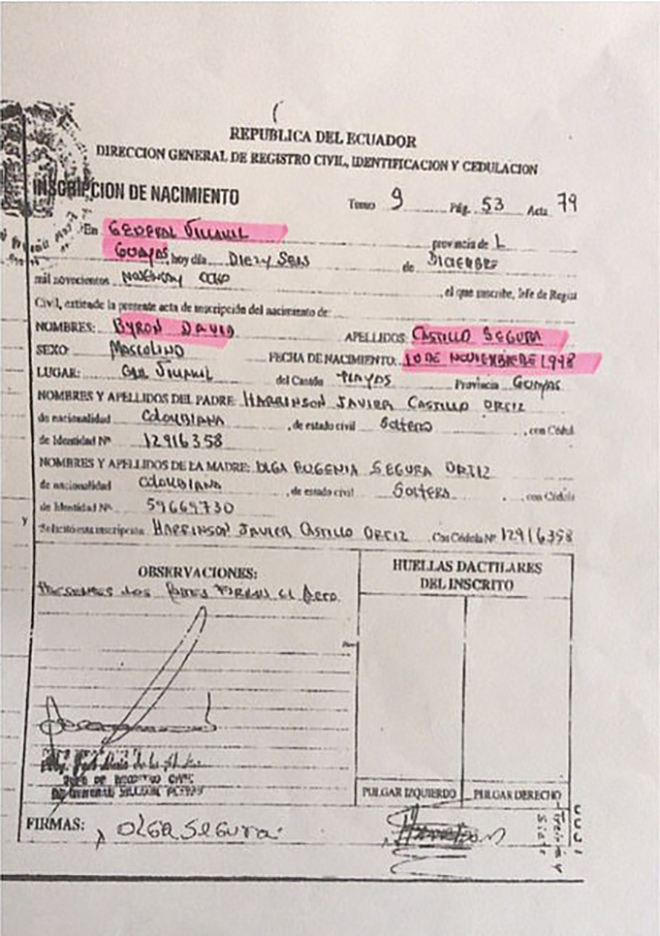 REPUBLICA DEL ECUADOR
DIRECCION GENERAL DE REGISTRO CIVIL, IDENTIFICACION Y CEDULACION
INSCRIPCION DE NACIMIENTO
Tomo 9 Pág. 53 Acta 79
En GENERAL VILLAMIL provincia de L
GUAYAS, hoy día DIEZ y SEIS de DICIEMBRE
mil novecientos NOVENTA y OCHO, el que suscribe, Jefe de Regist
Civil, extiende la presente acta de inscripción del nacimiento de:
NOMBRES: BYRON DAVID APELLIDOS: CASTILLO SEGURA
SEXO: MASCULINO FECHA DE NACIMIENTO: 10 DE NOVIEMBRE DE 1998
LUGAR: GRAL VILLAMIL del Cantón PLAYAS Provincia GUAYAS
NOMBRES Y APELLIDOS DEL PADRE: HARRINSON JAVIER CASTILLO ORTIZ
de nacionalidad COLOMBIANA, de estado civil Soltero, con Cédul
de Identidad Nº 12916358
NOMBRES Y APELLIDOS DE LA MADRE: OLGA EUGENIA SEGURA ORTIZ
de nacionalidad COLOMBIANA, de estado civil Soltera, con Cédula
de Identidad Nº 59669730
y
Solicitó esta inscripción HARRINSON JAVIER CASTILLO ORTIZ Con Cédula Nº 12916358
OBSERVACIONES:
HUELLAS DACTILARES
DEL INSCRITO
PRESENTES LOS PADRES FIRMAN EL ACTA
JEFE DE REGISTRO CIVIL
PULGAR IZQUIERDO PULGAR DERECHO
FIRMAS: OLGA SEGURA